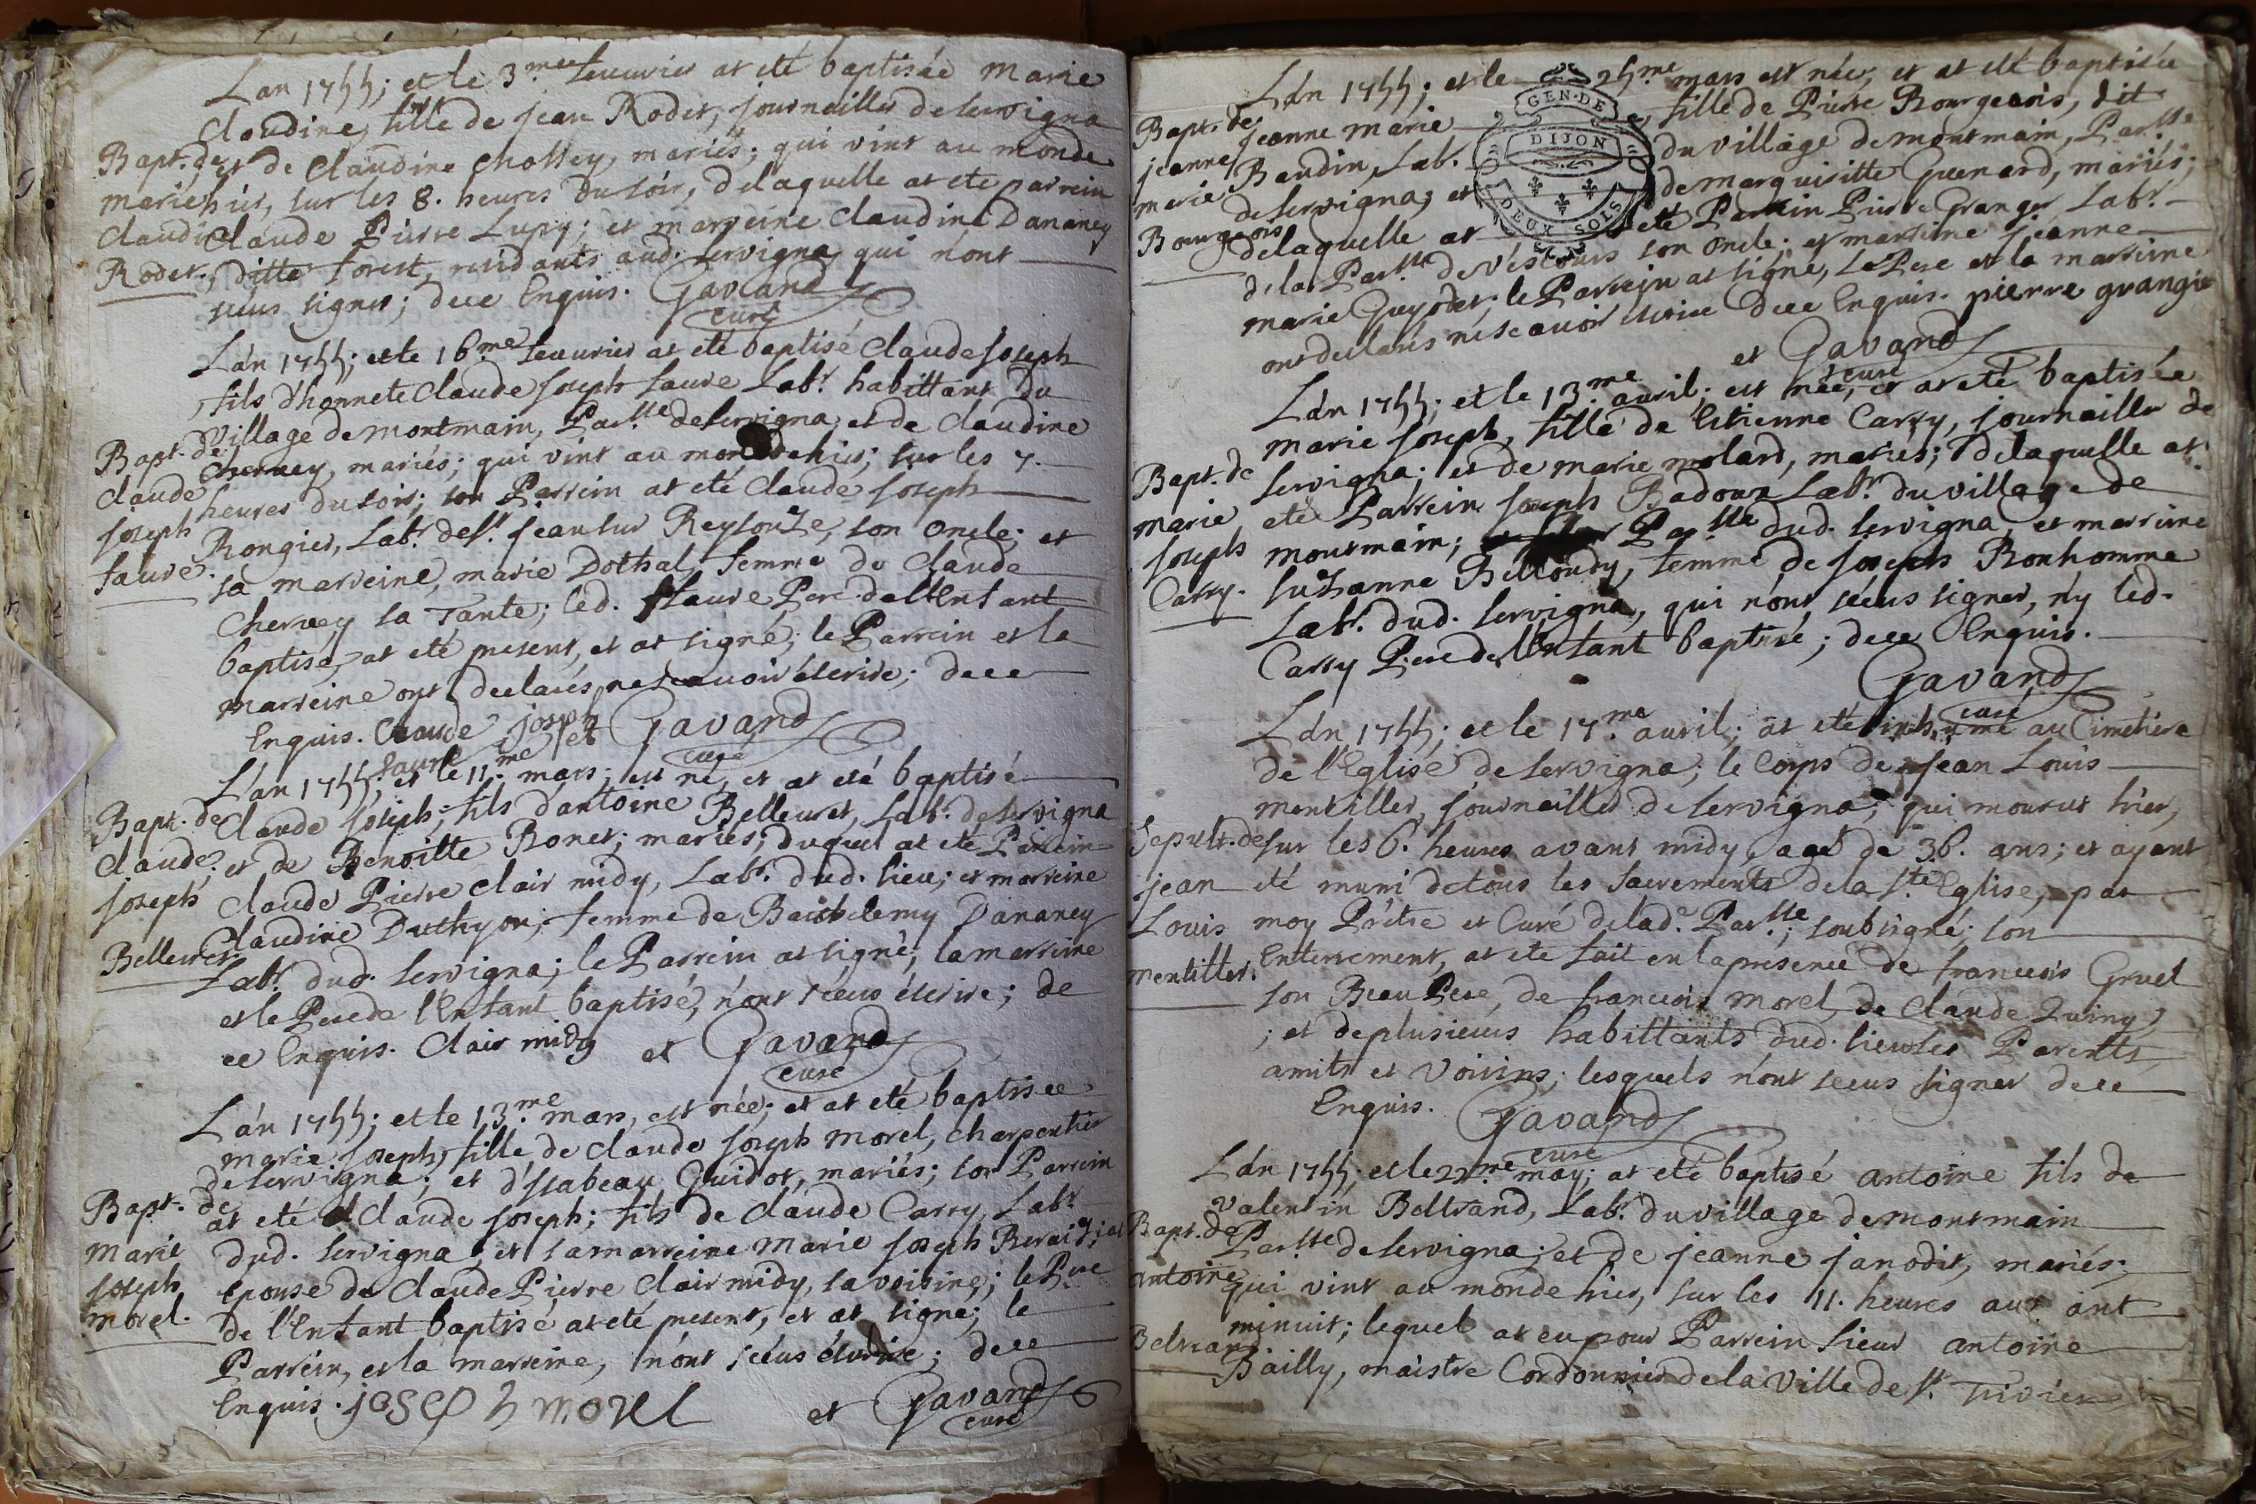 L'an 1755; et le 3.me feuvrier at eté baptisée Marie
Claudine, fille de jean Rodet, journailler de Servigna
Bapt. de et de Claudine Chossey, mariés; qui vint au monde
marie hier, sur les 8. heures du soir, delaquelle at eté parrein
Claudine Claude Pierre Lupy; et marreine Claudine Dananey
Rodet. ditte forest, residants aud. Servigna, qui n'ont
sceus signer; dece Enquis. Gavand
curé
L'an 1755; et le 16.me feuvrier at eté baptisé Claude Joseph
fils d'honnete Claude Joseph faure Lab.r habittant du
village de montmain, Par.sse de Servigna; et de Claudine
Bapt. de Cherney, mariés; qui vint au monde hier; sur les 7.
Claude heures du soir; son Parrein at eté Claude Joseph
Joseph Rongier, Lab.r de S.t jean sur Reysouze, son oncle; et
faure. sa marreine, marie Dothal, femme de Claude
Cherney sa Tante; led. faure Pere de l'Enfant
baptisé, at eté present, et at signé; le Parrein et la
marreine ont declarés ne scavoir écrire; dece
Enquis. Claude joseph faure et Gavand
curé
L'an 1755; et le 11.me mars; est né, et at eté baptisé
Bapt. de Claude Joseph; fils d'antoine Belleuret, Lab.r de Servigna
Claude et de Benoitte Bonet; mariés; duquel at eté Parrein
Joseph Claude Pierre Clair midy, Lab.r dud. lieu; et marreine
Belleuret Claudine Duthyon; femme de Barthelemy Dananey
Lab.r dud. Servigna; le Parrein at signé; la marreine
et le Pere de l'Enfant baptisé, n'ont sceus écrire; de
ce Enquis. Clair midy et Gavand
curé
L'an 1755; et le 13.me mars, est née; et at eté baptisée
marie Joseph, fille de Claude Joseph morel, charpentier
de Servigna; et d'Isabeau Guidot, mariés; son Parrein
Bapt. de at eté Claude Joseph; fils de Claude Carry, Lab.r
Marie dud. Servigna, et sa marreine Marie Joseph
Joseph epouse de Claude Pierre Clair midy, sa voisine; le Pere
morel. de l'Enfant baptisé at eté present, et at signé; le
Parrein, et la marreine, n'ont sceus écrire; dece
Enquis. joseph morel et Gavand
curé
L'an 1755; et le 25.me mars est née, et at eté baptisée
Bapt. de jeanne marie, fille de Pierre Bourgeois, dit
jeanne Baudin, Lab.r du village de montmain, Par.sse
marie de Servigna; et de marguisitte Guenard, mariés;
Bourgeois delaquelle at eté Parrein Pierre Granger Lab.r
de la Par.sse de Vescours son oncle; et marreine jeanne
marie Guyodet; le Parrein at signé, le Pere et la marreine
ont declarés ne scavoir écrire dece Enquis. pierre grangie
et Gavand
curé
GEN. DE
DIJON
DEUX SOLS
L'an 1755; et le 13.me avril; est née, et at eté baptisée
marie Joseph, fille de Etienne Carry, journailler de
Bapt. de Servigna; et de marie molard, mariés; delaquelle at
marie eté Parrein Joseph Badoux Lab.r du village de
Joseph montmain; Par.sse dud. Servigna; et marreine
Carry. Suzanne Belloudy, femme de Joseph Bonhomme
Lab.r dud. Servigna, qui n'ont sceus signer, n'y led.
Carry Pere de l'Enfant baptisé; dece Enquis.
Gavand
curé
L'an 1755; et le 17.me avril; at eté inhumé au Cimetiere
de l'Eglise de Servigna; le Corps de Jean Louis
mentiller, journailler de Servigna, qui mourut hier,
Sepult. de sur les 6. heures avant midy, agé de 36. ans; et ayant
jean eté muni de tous les Sacrements de la S.te Eglise, par
Louis moy Prêtre et Curé de lad.e Par.sse; soubsigné; son
mentiller. Enterrement, at eté fait en la presence de francois Gruel
son Beau Pere, de francois morel, de Claude Quiny
; et de plusieurs habittants dud. lieu ses Parents
amits et Voisins; lesquels n'ont sceus signer dece
Enquis. Gavand
curé
L'an 1755; et le 22.me may; at eté baptisé antoine fils de
valentin Beltrand, Lab.r du village de montmain
Bapt. de Par.sse de Servigna; et de jeanne janodit, mariés;
antoine qui vint au monde hier, sur les 11. heures
Beltrand minuit; lequel at eu pour Parrein Sieur antoine
Bailly, maistre Cordonnier de la Ville de S.t Trivier